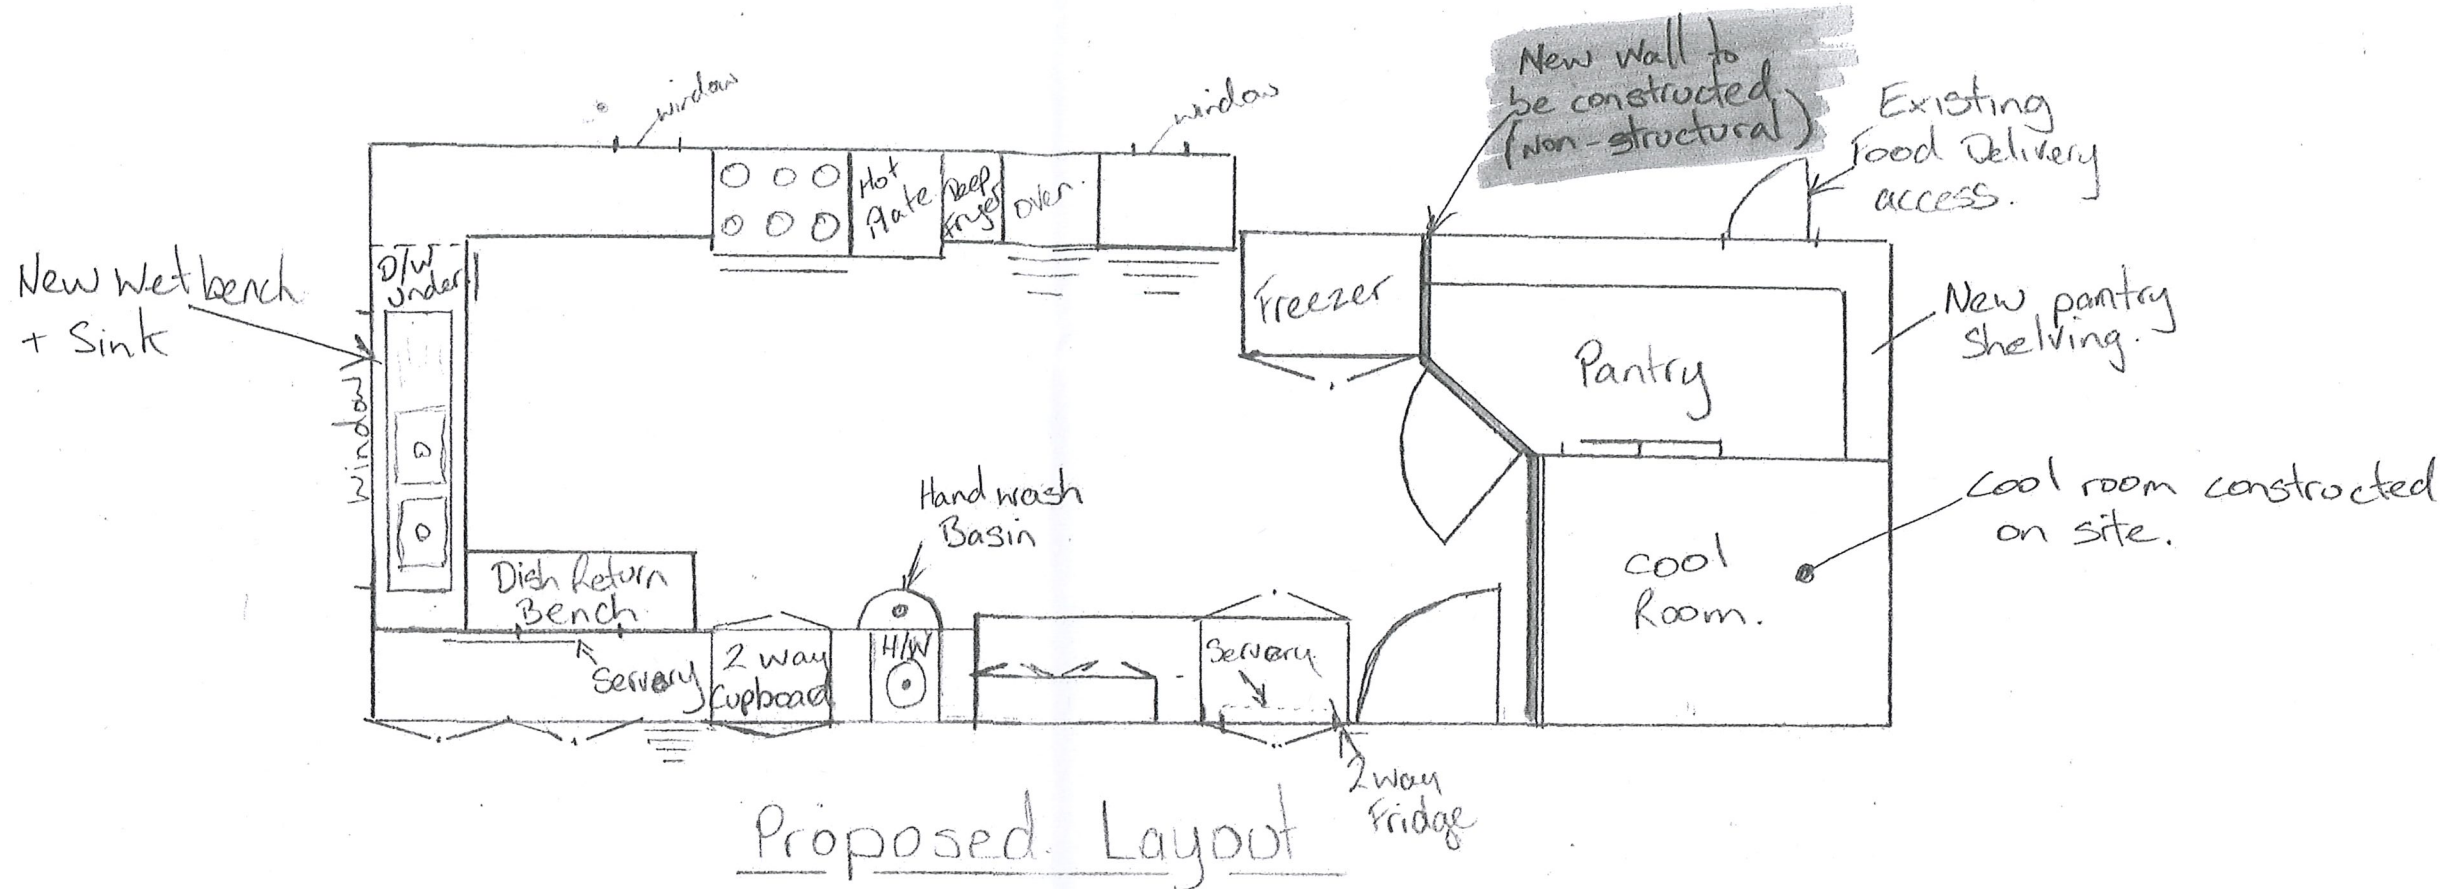 window
window
New Wall to
be constructed
(Non-structural)
Existing
Food Delivery
access.
Hot
Plate
Deep
Fryer
Oven.
D/W
under
New Wet bench
+ Sink
window
Freezer
Pantry
New pantry
Shelving.
Hand wash
Basin
Cool room constructed
on site.
Cool
Room.
Dish Return
Bench
Servery
2 way
Cupboard
H/W
Servery
2 way
Fridge
Proposed Layout